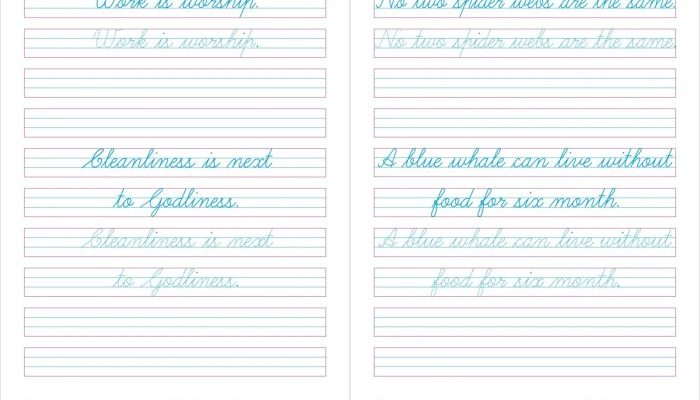 Work is worship.
Work is worship.
Cleanliness is next
to Godliness.
Cleanliness is next
to Godliness.
No two spider webs are the same.
No two spider webs are the same.
A blue whale can live without
food for six month.
A blue whale can live without
food for six month.